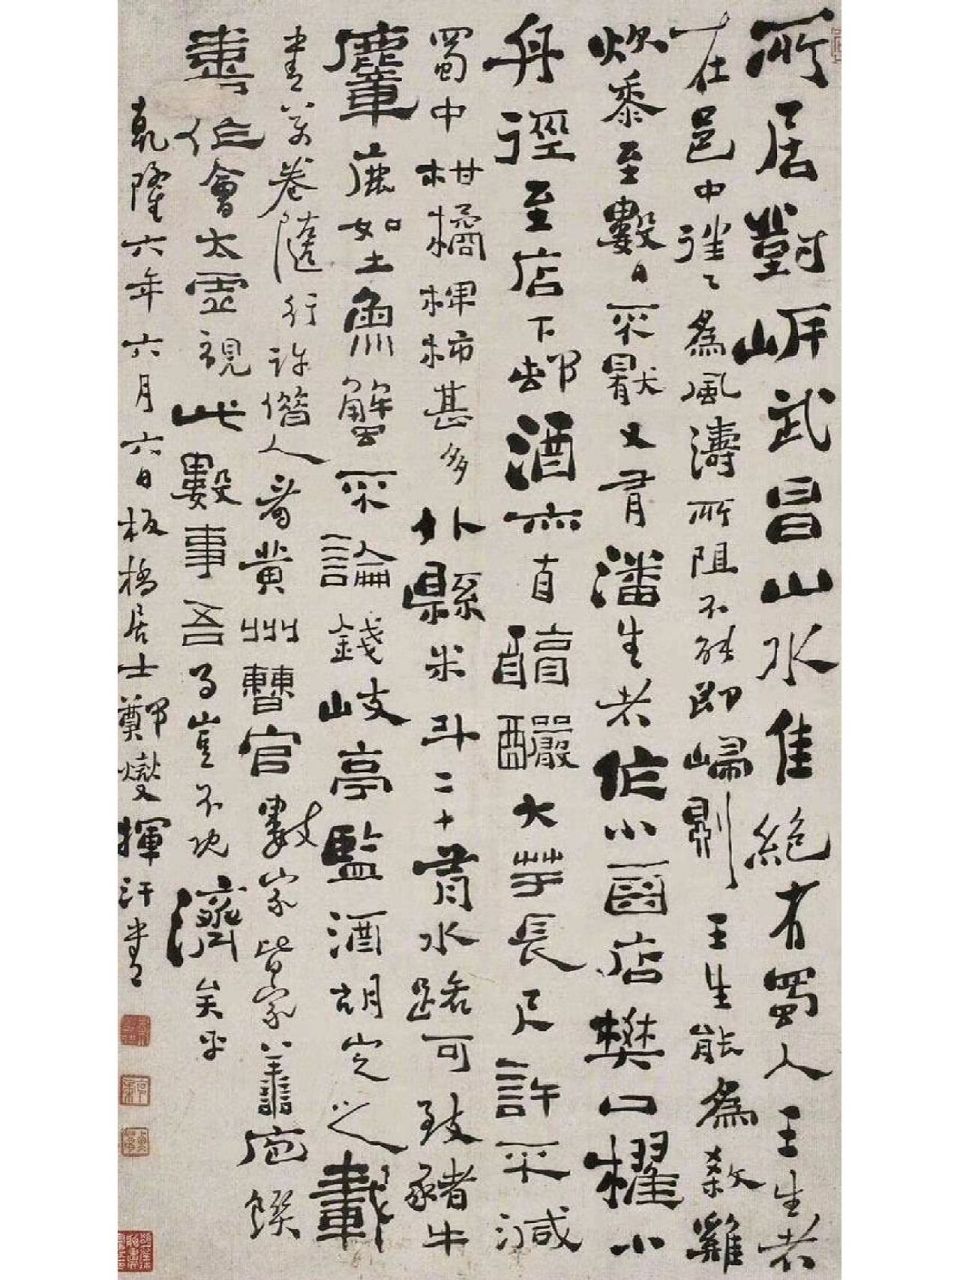 所居對岍武昌山水佳絕有蜀人王生者
在邑中往〻為風濤所阻不能即歸則王生能為殺雞
炊黍至數日不厭又有潘生者作小酒店樊口櫂小
舟徑至店下邨酒亦自醇釅大芋長尺許不減
蜀中柑橘椑柿甚多外縣米斗二十有水路可致豬牛
麞鹿如土魚蟹不論錢岐亭監酒胡定之載
書萬卷隨行許借人看黄州曹官數家皆家善庖饌
喜作會太虛視此數事吾事豈不既濟矣乎
乾隆六年六月六日板橋居士鄭燮揮汗書